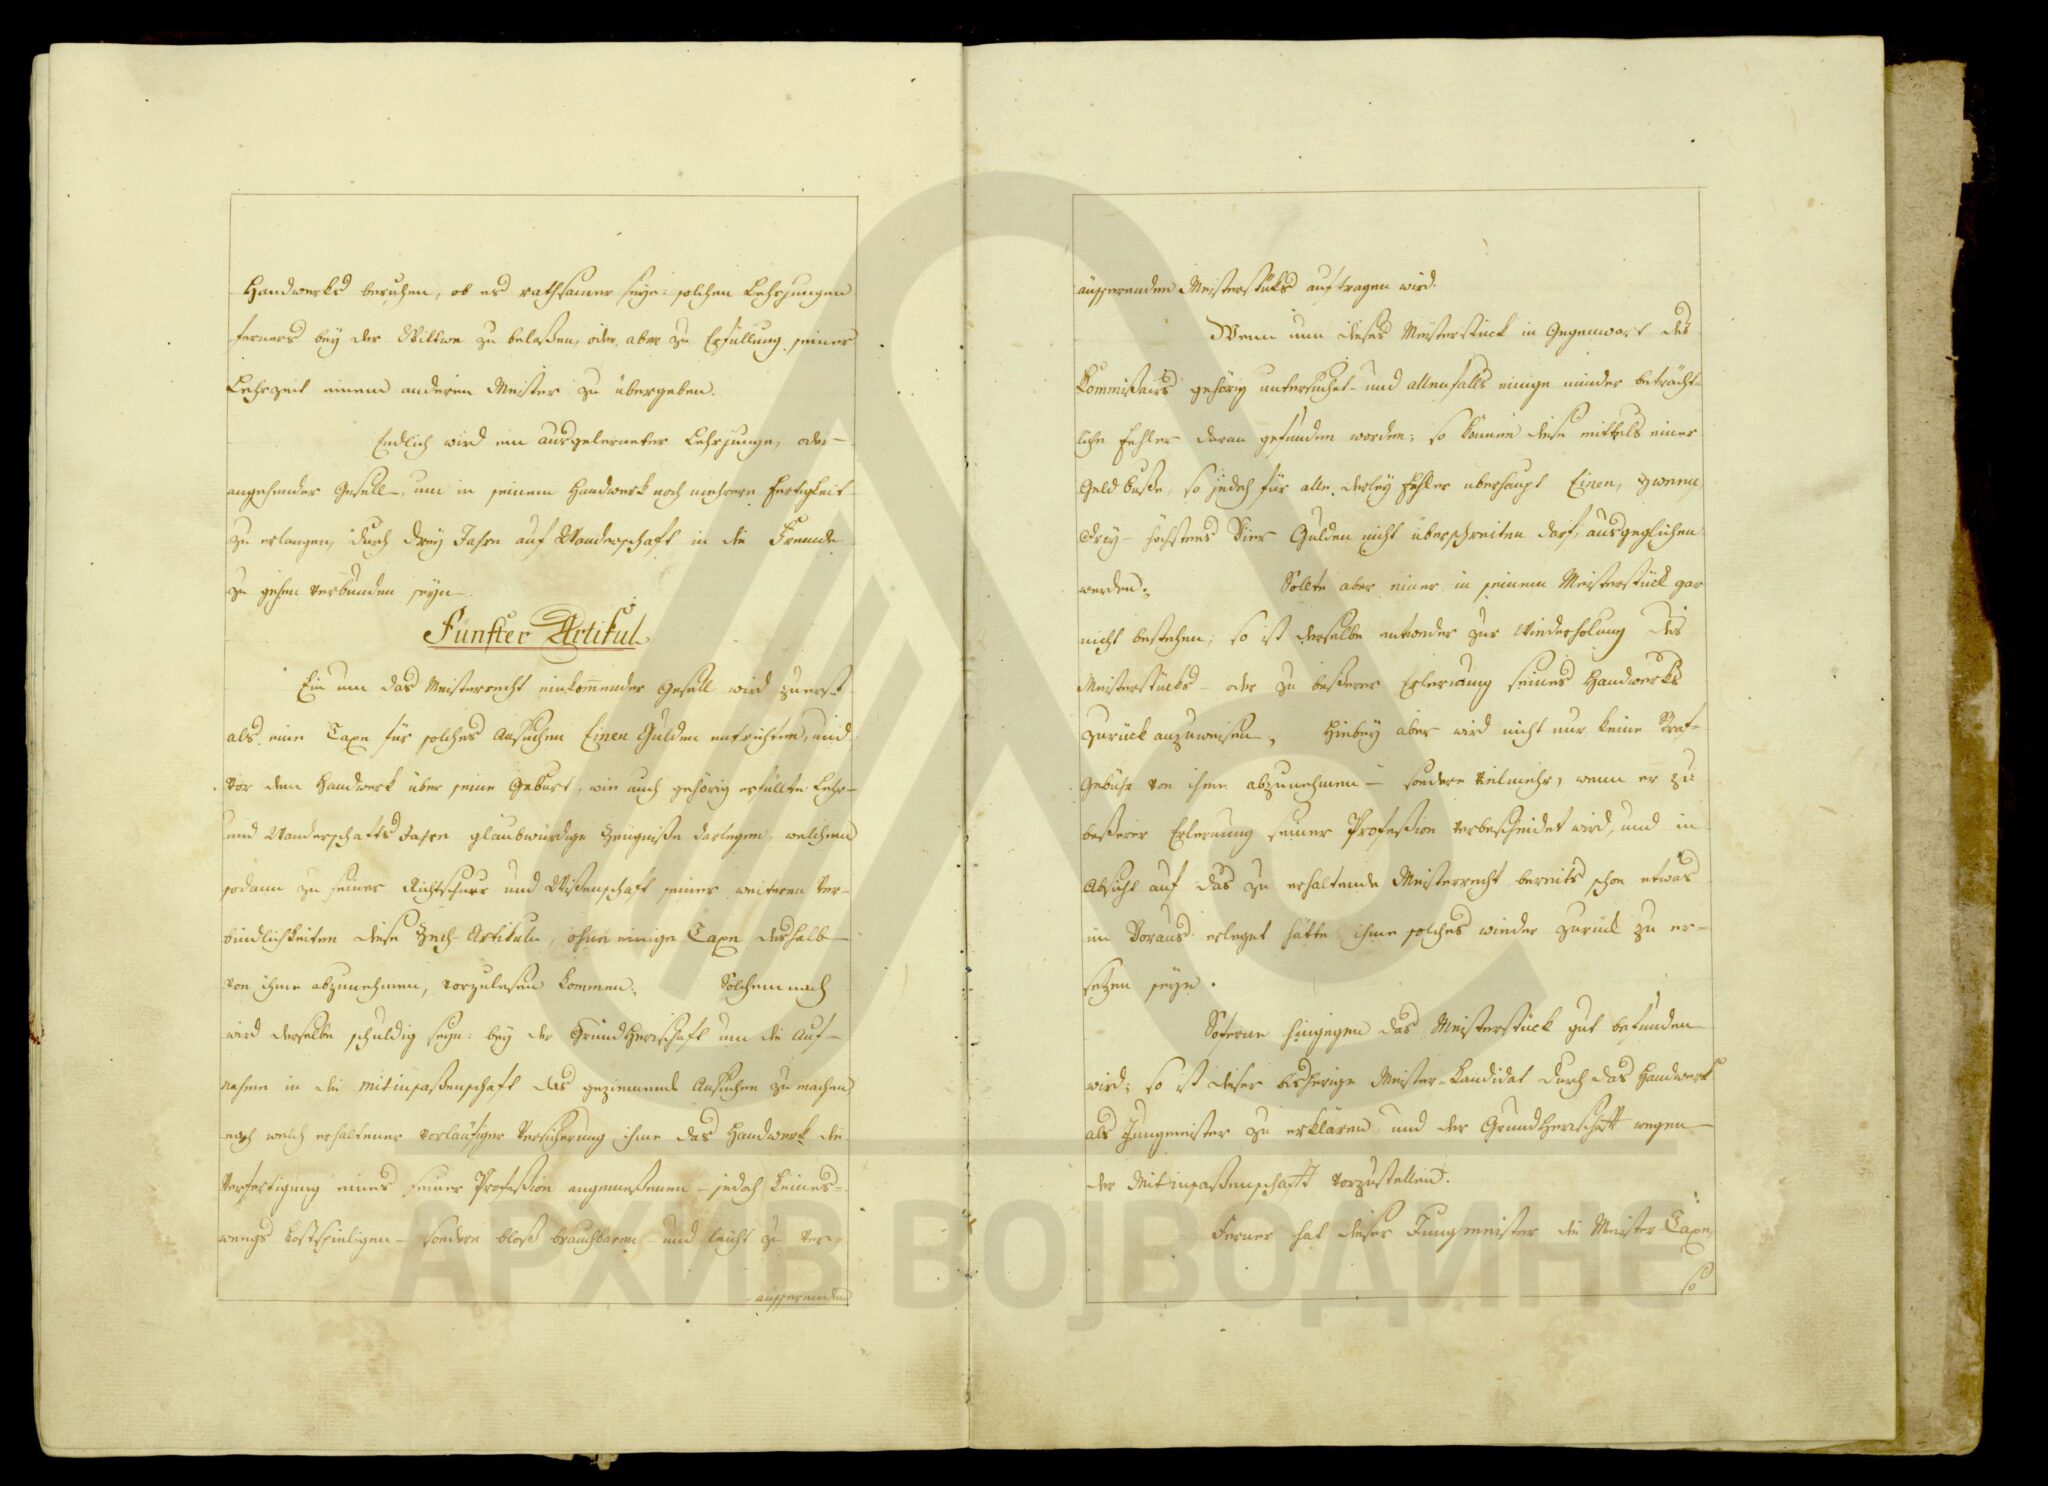 Handwerks beruhen, ob es rathsamer seye: solchen Lehrjungen
ferners bey der Wittwe zu belaßen, oder aber zu Erfüllung seiner
Lehrzeit einem anderen Meister zu übergeben.
Endlich wird ein ausgelerneter Lehrjunge, oder
angehender Gesell, um in seinem Handwerk noch mehrere Fertigkeit
zu erlangen, durch drey Jahre auf Wanderschaft in die Fremde
zu gehen verbunden seyn.
Fünfter Artikul
Ein um das Meisterrecht einkommender Gesell wird zuerst
als eine Taxe für solches Ansuchen Einen Gulden entrichten, und
vor dem Handwerk über seine Geburt, wie auch gehörig erfüllte Lehr-
und Wanderschafts Jahre glaubwürdige Zeugniße darlegen, welchem
sodann zu seiner Richtschnur und Wißenschaft seiner weiteren Ver-
bindlichkeiten diese Zech-Artikuln, ohne einige Taxe deshalb
von ihme abzunehmen, vorzulesen kommen. Solchemnach
wird derselbe schuldig seyn: bey der Grundherrschaft um die Auf-
nahme in die Mitinsaßenschaft das geziemende Ansuchen zu machen
nach welch erhaltener vorläufiger Versicherung ihme das Handwerk die
Verfertigung eines seiner Profeßion angemeßenen - jedoch keines-
weegs kostspieligen - sondern bloß brauchbaren - und leicht zu ver-
äusserenden
äusserenden Meisterstüks auftragen wird.
Wenn nun dieses Meisterstuck in Gegenwart des
Kommißairs gehörig untersuchet - und allenfalls einige minder beträcht-
liche Fehler daran gefunden worden; so können diese mittels einer
Geld Buße, so jedoch für alle derley Fehler überhaupt Einen, Zween,
Drey - höchstens Vier Gulden nicht überschreiten darf, ausgeglichen
werden. Sollte aber einer in seinem Meisterstück gar
nicht bestehen; so ist derselbe entweder zur Wiederholung des
Meisterstücks - oder zu beßerer Erlernung seines Handwerks
zurück anzuweisen. Hiebey aber wird nicht nur keine Straf-
Gebühr von ihme abzunehmen - sondern vielmehr, wenn er zu
beßerer Erlernung seiner Profeßion verbescheidet wird, und in
Absicht auf das zu erhaltende Meisterrecht bereits schon etwas
im Voraus erleget hätte ihme solches wieder zurück zu er-
setzen seyn.
Soferne hingegen das Meisterstück gut befunden
wird; so ist dieser bisherige Meister-Kandidat durch das Handwerk
als Jungmeister zu erklären und der Grundherrschaft wegen
der Mitinsaßenschaft vorzustellen.
Ferner hat dieser Jungmeister die Meister Taxe,
so
АРХИВ ВОЈВОДИНЕ